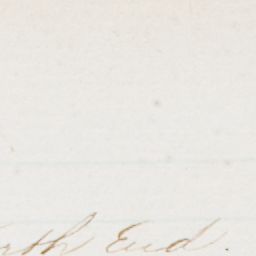 rth End.